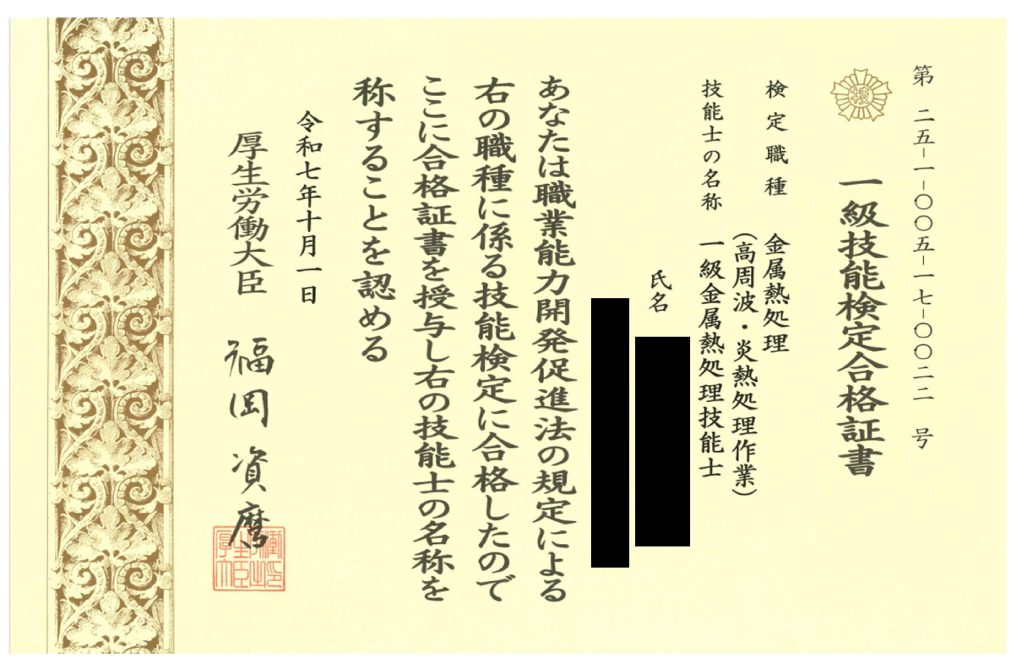 第 二五-一-〇〇五-一七-〇〇二二 号
一級技能検定合格証書
検定職種 金属熱処理
(高周波・炎熱処理作業)
技能士の名称 一級金属熱処理技能士
氏名
あなたは職業能力開発促進法の規定による
右の職種に係る技能検定に合格したので
ここに合格証書を授与し右の技能士の名称を
称することを認める
令和七年十月一日
厚生労働大臣 福岡 資麿